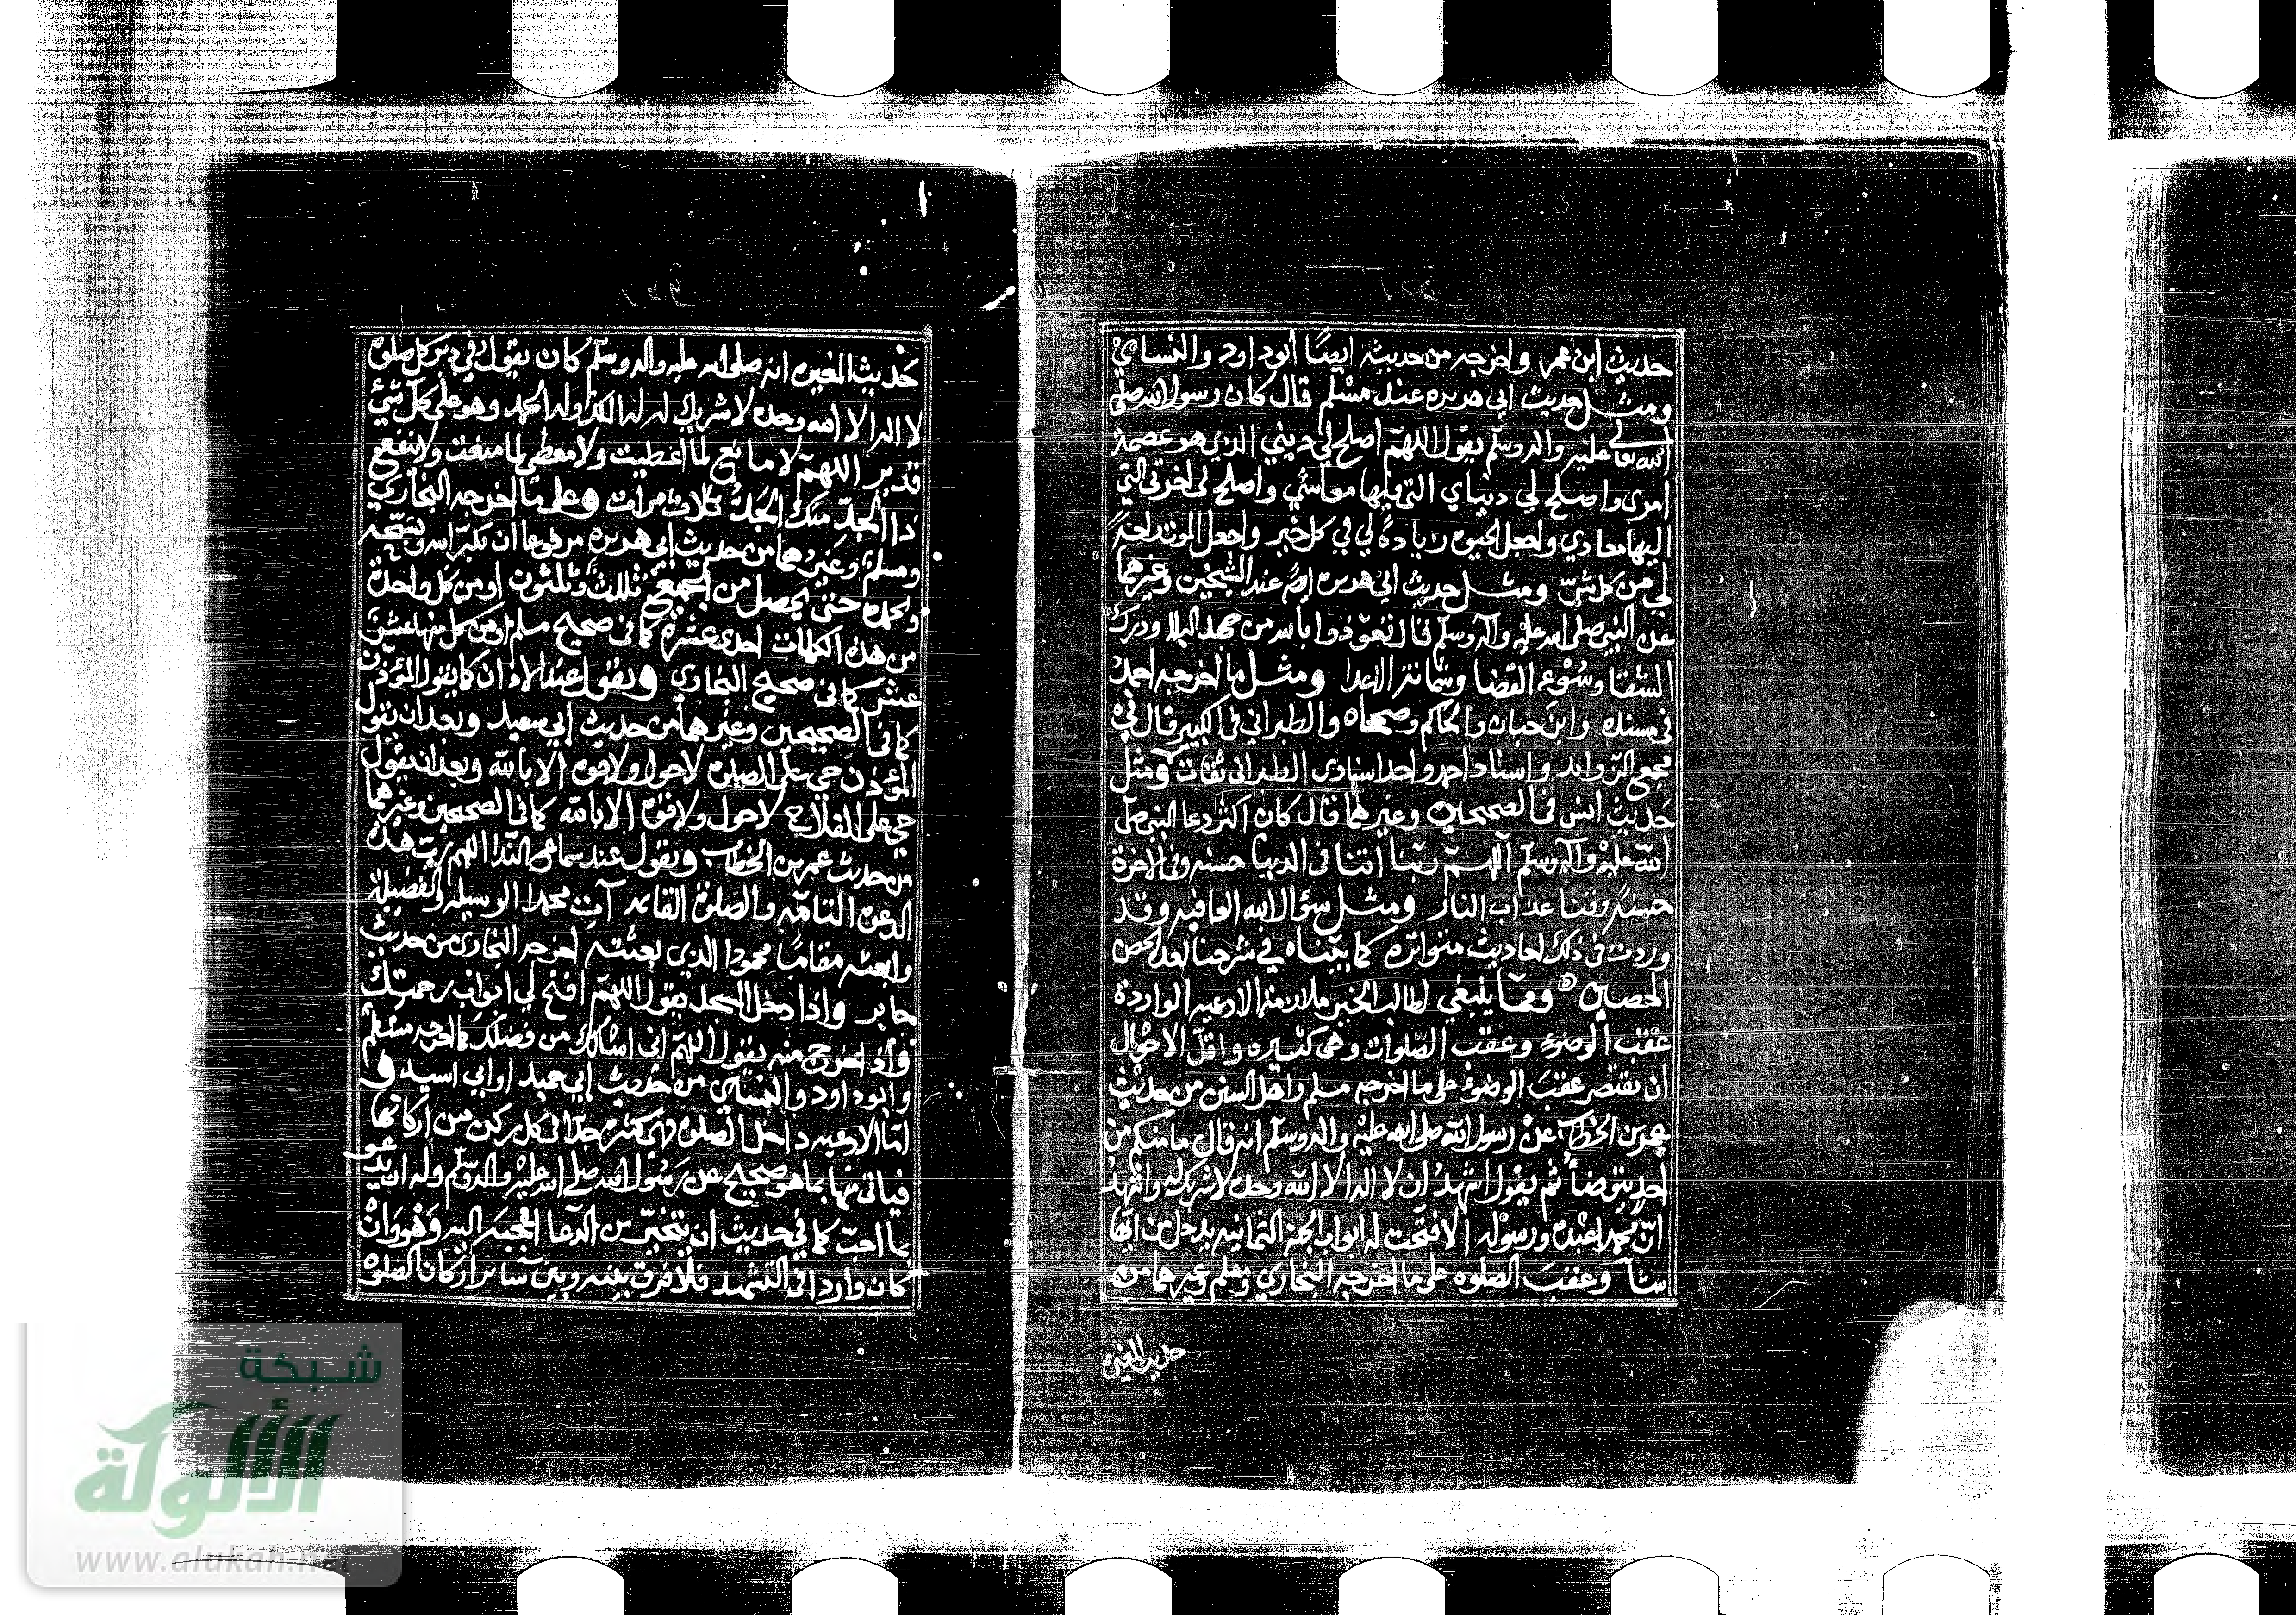 حديث ابن عمر واخرجه من حديثه ايضًا أبوداود والنساي
ومثل حديث ابي هريره عند مسْلم قال كان رسول الله صلى
الله تعالى عليه واله وسلم يقول اللهمّ أصلح لي ديني الذي هو عصمة
امرى واصلح لي دنياي التى فيها معاشي واصلح لى اخرتى التي
اليها معادي واجعل الحيوه زيادةً لي في كل خير واجعل الموت راحةً
لي من كل شرّ ومثل حديث ابي هريره ايضً عند الشيخين وغيرهما
عن النبي صلى الله عليه وآله وسلم قال تعوّذوا بالله من جهد البلا ودرك
الشقا وسُوء القضا وشماتة الاعدا ومثل ما اخرجه احمد
فى مسنده وابن حبان والحاكم وصححاه والطبراني فى الكبير قال في
مجمع الزوايد واسناد احمد واحد اسنادى الطبرانى ثقات ومثل
حديث انس فى الصحيحين وغيرهما قال كان اكثر دعا النبي صلى
الله عليه وآله وسلم اللهم ربّنا اتنا فى الدنيا حسنه وفى الاخرة
حسنةً وقنا عذاب النار ومثل سؤال الله العافيه وقد
وردت فى ذلك احاديث متواتره كما بيّناه في شرحنا لعدة الحصن
الحصين وممّا ينبغي لطالب الخير ملازمة الادعيه الواردة
عقب الوضوء وعقب الصّلوات وهى كثيره واقلّ الاحوال
ان يقتصر عقبَ الوضوء على ما اخرجه مسلم واهل السنن من حديث
عمر بن الخطاب عن رسول الله صلى الله عليه واله وسلم انه قال ما منكم من
احد يتوضأ ثم يقول اشهدُ أن لا اله الا الله وحده لا شريك له واشهدُ
انّ محمدا عبده ورسوله الا فتحت له ابواب الجنة الثمانيه يدخل من ايّها
شآ وعقبَ الصلوه على ما اخرجه البخاري ومسلم وغيرهما من
حديث المغيره
حَديث المغيره انه صلى الله عليه واله وسلّم كان يقول في دبر كل صلوه
لا اله الا الله وحده لا شريك له له الملك وله الحمد وهو على كل شيْ
قدير اللهمّ لا مانع لما أعطيت ولا معطي لما منعت ولا ينفع
ذا الجدّ منك الجَدّ ثلاث مرات وعلى ما اخرجه البخاري
ومسلم وغيرهما من حديث ابي هريره مرفوعا ان تكبّر الله وتسبّحه
وتحمده حتى يحصل من الجميع ثلاث وثلثون او من كل واحدة
من هذه الكلمات احدى عشرة كما فى صحيح مسلم او من كل منها عشر
عشر كما فى صحيح البخاري ويقول عند الاذان كما يقول المؤذن
كما فى الصحيحين وغيرهما من حديث ابي سعيد وبعد ان يقول
المؤذن حي على الصلوه لا حول ولا قوه الا بالله وبعد ان يقول
حي على الفلاح لا حول ولا قوة الا بالله كما فى الصحيحين وغيرهما
من حديث عمر بن الخطاب ويقول عند سماع النّدا اللهم ربّ هذه
الدعوة التامّه والصلوة القائمه آت محمدا الوسيله والفضيلة
وابعثه مقامًا محمودا الذي بعثته اخرجه البخارى من حديث
جابر واذا دخل المسجد يقول اللهمّ افتح لي ابواب رحمتك
وإذا خرج منه يقول اللهمّ انى اسئلك من فضلك كما اخرجه مسلم
وابوداود والنساي من حديث ابي حميد او ابي اسيد و
امّا الادعيه داخل الصلوه فهي كثيره جدّا فى كل ركن من اركانها
فيأتى منها بما هو صحيح عن رَسُول الله صلى الله عليه واله وسلّم وله ان يدعو
بما احبّ كما في حديث ان يتخيّر من الدعا اعجبَه اليه وَهُو وَانْ
كان واردا فى التشهد فلا فرق بينه وبين سآئر اركان الصلوه
شبكة
الألوكة
www.alukah.net